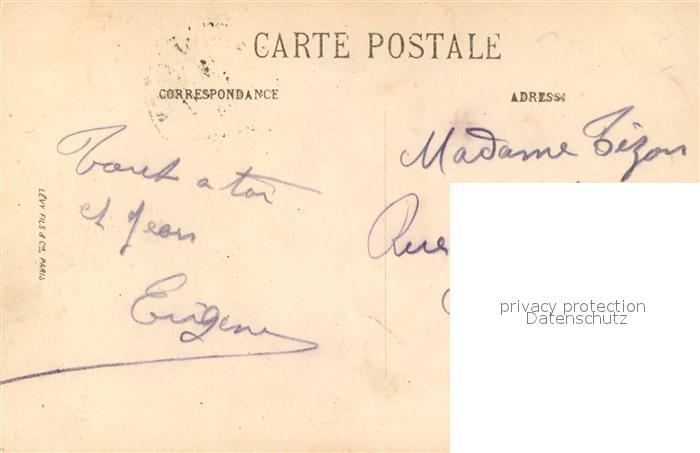 CARTE POSTALE
CORRESPONDANCE
ADRESSE
Tout a toi
et Jean
Eugène
Madame Tizon
Rue
LÉVY FILS & Cie, PARIS
privacy protection
Datenschutz